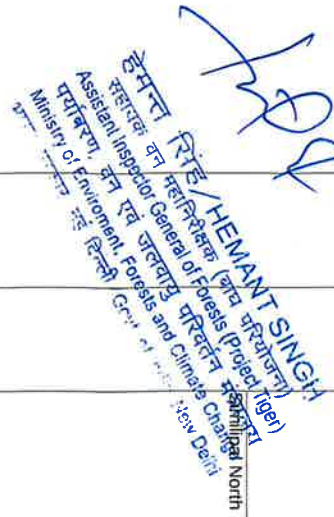 हेमन्त सिंह/HEMANT SINGH
सहायक वन महानिरीक्षक (बाघ परियोजना)
Assistant Inspector General of Forests (Project Tiger)
पर्यावरण, वन एवं जलवायु परिवर्तन
Ministry of Enviroment, Forests and Climate Change
नई दिल्ली Govt of New Delhi
Similipal North